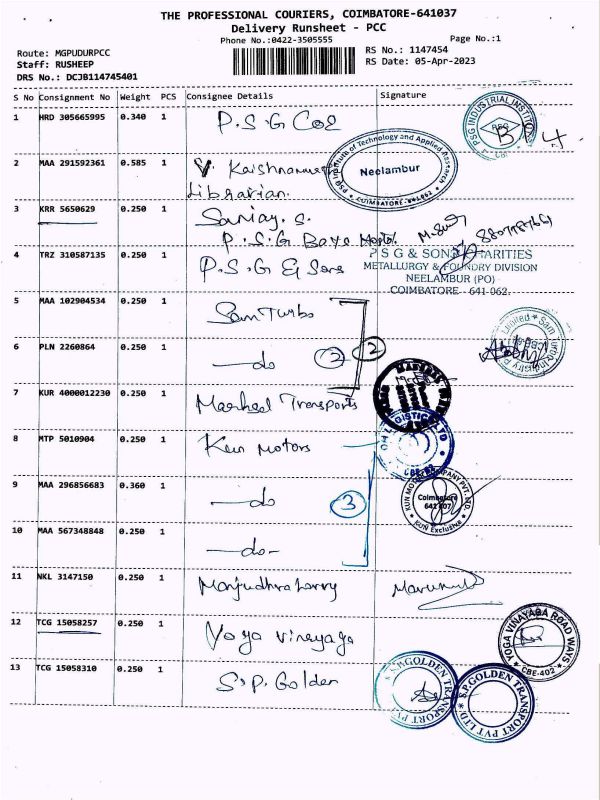 THE PROFESSIONAL COURIERS, COIMBATORE-641037
Delivery Runsheet - PCC
Phone No.:0422-3505555
Page No.:1
Route: MGPUDURPCC
Staff: RUSHEEP
DRS No.: DCJB114745401
RS No.: 1147454
RS Date: 05-Apr-2023
S No Consignment No Weight PCS Consignee Details Signature
1 HRD 305665995 0.340 1 P.S.G COE
PSG INDUSTRIAL INSTIT
PSG
2 MAA 291592361 0.585 1 V.
Librarian.
PSG Institute of Technology and Applied Research
Neelambur
COIMBATORE
3 KRR 5650629 0.250 1 Sanjay. S.
P.S.G Boys Hostel.
4 TRZ 310587135 0.250 1 P.S.G & Sons
P S G & SONS CHARITIES
METALLURGY & FOUNDRY DIVISION
NEELAMBUR (PO)
COIMBATORE 641 062.
5 MAA 102904534 0.250 1 Sam Turbo
6 PLN 2260864 0.250 1 —do 2 2
Limited * Sam Turbo Industry P
7 KUR 4000012230 0.250 1 Transports
8 MTP 5010904 0.250 1 Kun Motors
LTD
9 MAA 296856683 0.360 1 —do 3
KUN MOTOR COMPANY PVT. LTD.
Coimbatore
641 407
KUN Exclusive
10 MAA 567348848 0.250 1 —do-
11 NKL 3147150 0.250 1
12 TCG 15058257 0.250 1 Yoga Vinayaga
YOGA VINAYAGA ROAD WAYS
CBE-402
13 TCG 15058310 0.250 1 S.P. Golden
S.P.GOLDEN TRANSPORT PVT LTD
S.P.GOLDEN TRANSPORT PVT LTD.